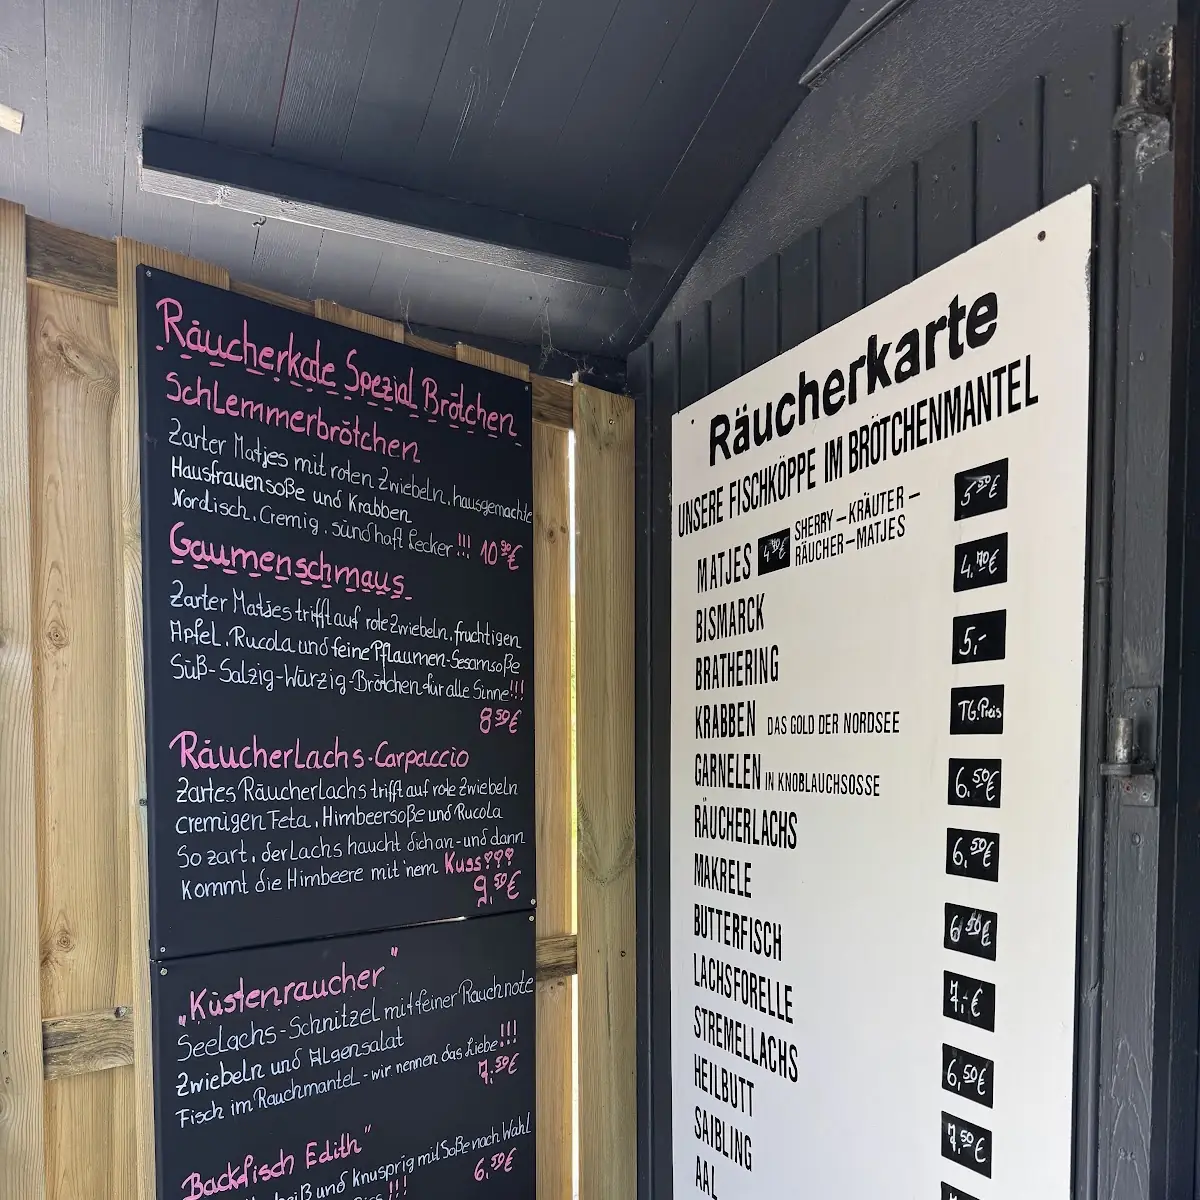 Räucherkate Spezial Brötchen
Schlemmerbrötchen
Zarter Matjes mit roten Zwiebeln, hausgemachte
Hausfrauensoße und Krabben
Nordisch, Cremig, sündhaft lecker!!! 10,90€
Gaumenschmaus
Zarter Matjes trifft auf rote Zwiebeln, fruchtigen
Apfel, Rucola und feine Pflaumen-Sesamsoße
Süß-Salzig-Würzig-Brötchen für alle Sinne!!!
8,50€
Räucherlachs-Carpaccio
Zartes Räucherlachs trifft auf rote Zwiebeln
cremigen Feta, Himbeersoße und Rucola
So zart, der Lachs haucht dich an-und dann
kommt die Himbeere mit 'nem Kuss
9,50€
„Küstenraucher"
Seelachs-Schnitzel mit feiner Rauchnote
Zwiebeln und Algensalat
Fisch im Rauchmantel-wir nennen das Liebe!!!
7,50€
Backfisch Edith"
heiß und knusprig mit Soße nach Wahl
!!! 6,50€
Räucherkarte
UNSERE FISCHKÖPPE IM BRÖTCHENMANTEL
MATJES SHERRY-KRÄUTER-
RÄUCHER-MATJES 5,20€
BISMARCK 4,70€
BRATHERING 5,-
KRABBEN DAS GOLD DER NORDSEE TG.Preis
GARNELEN IN KNOBLAUCHSOSSE 6,50€
RÄUCHERLACHS 6,50€
MAKRELE 6,50€
BUTTERFISCH 7,-€
LACHSFORELLE 6,50€
STREMELLACHS 7,50€
HEILBUTT
SAIBLING
AAL